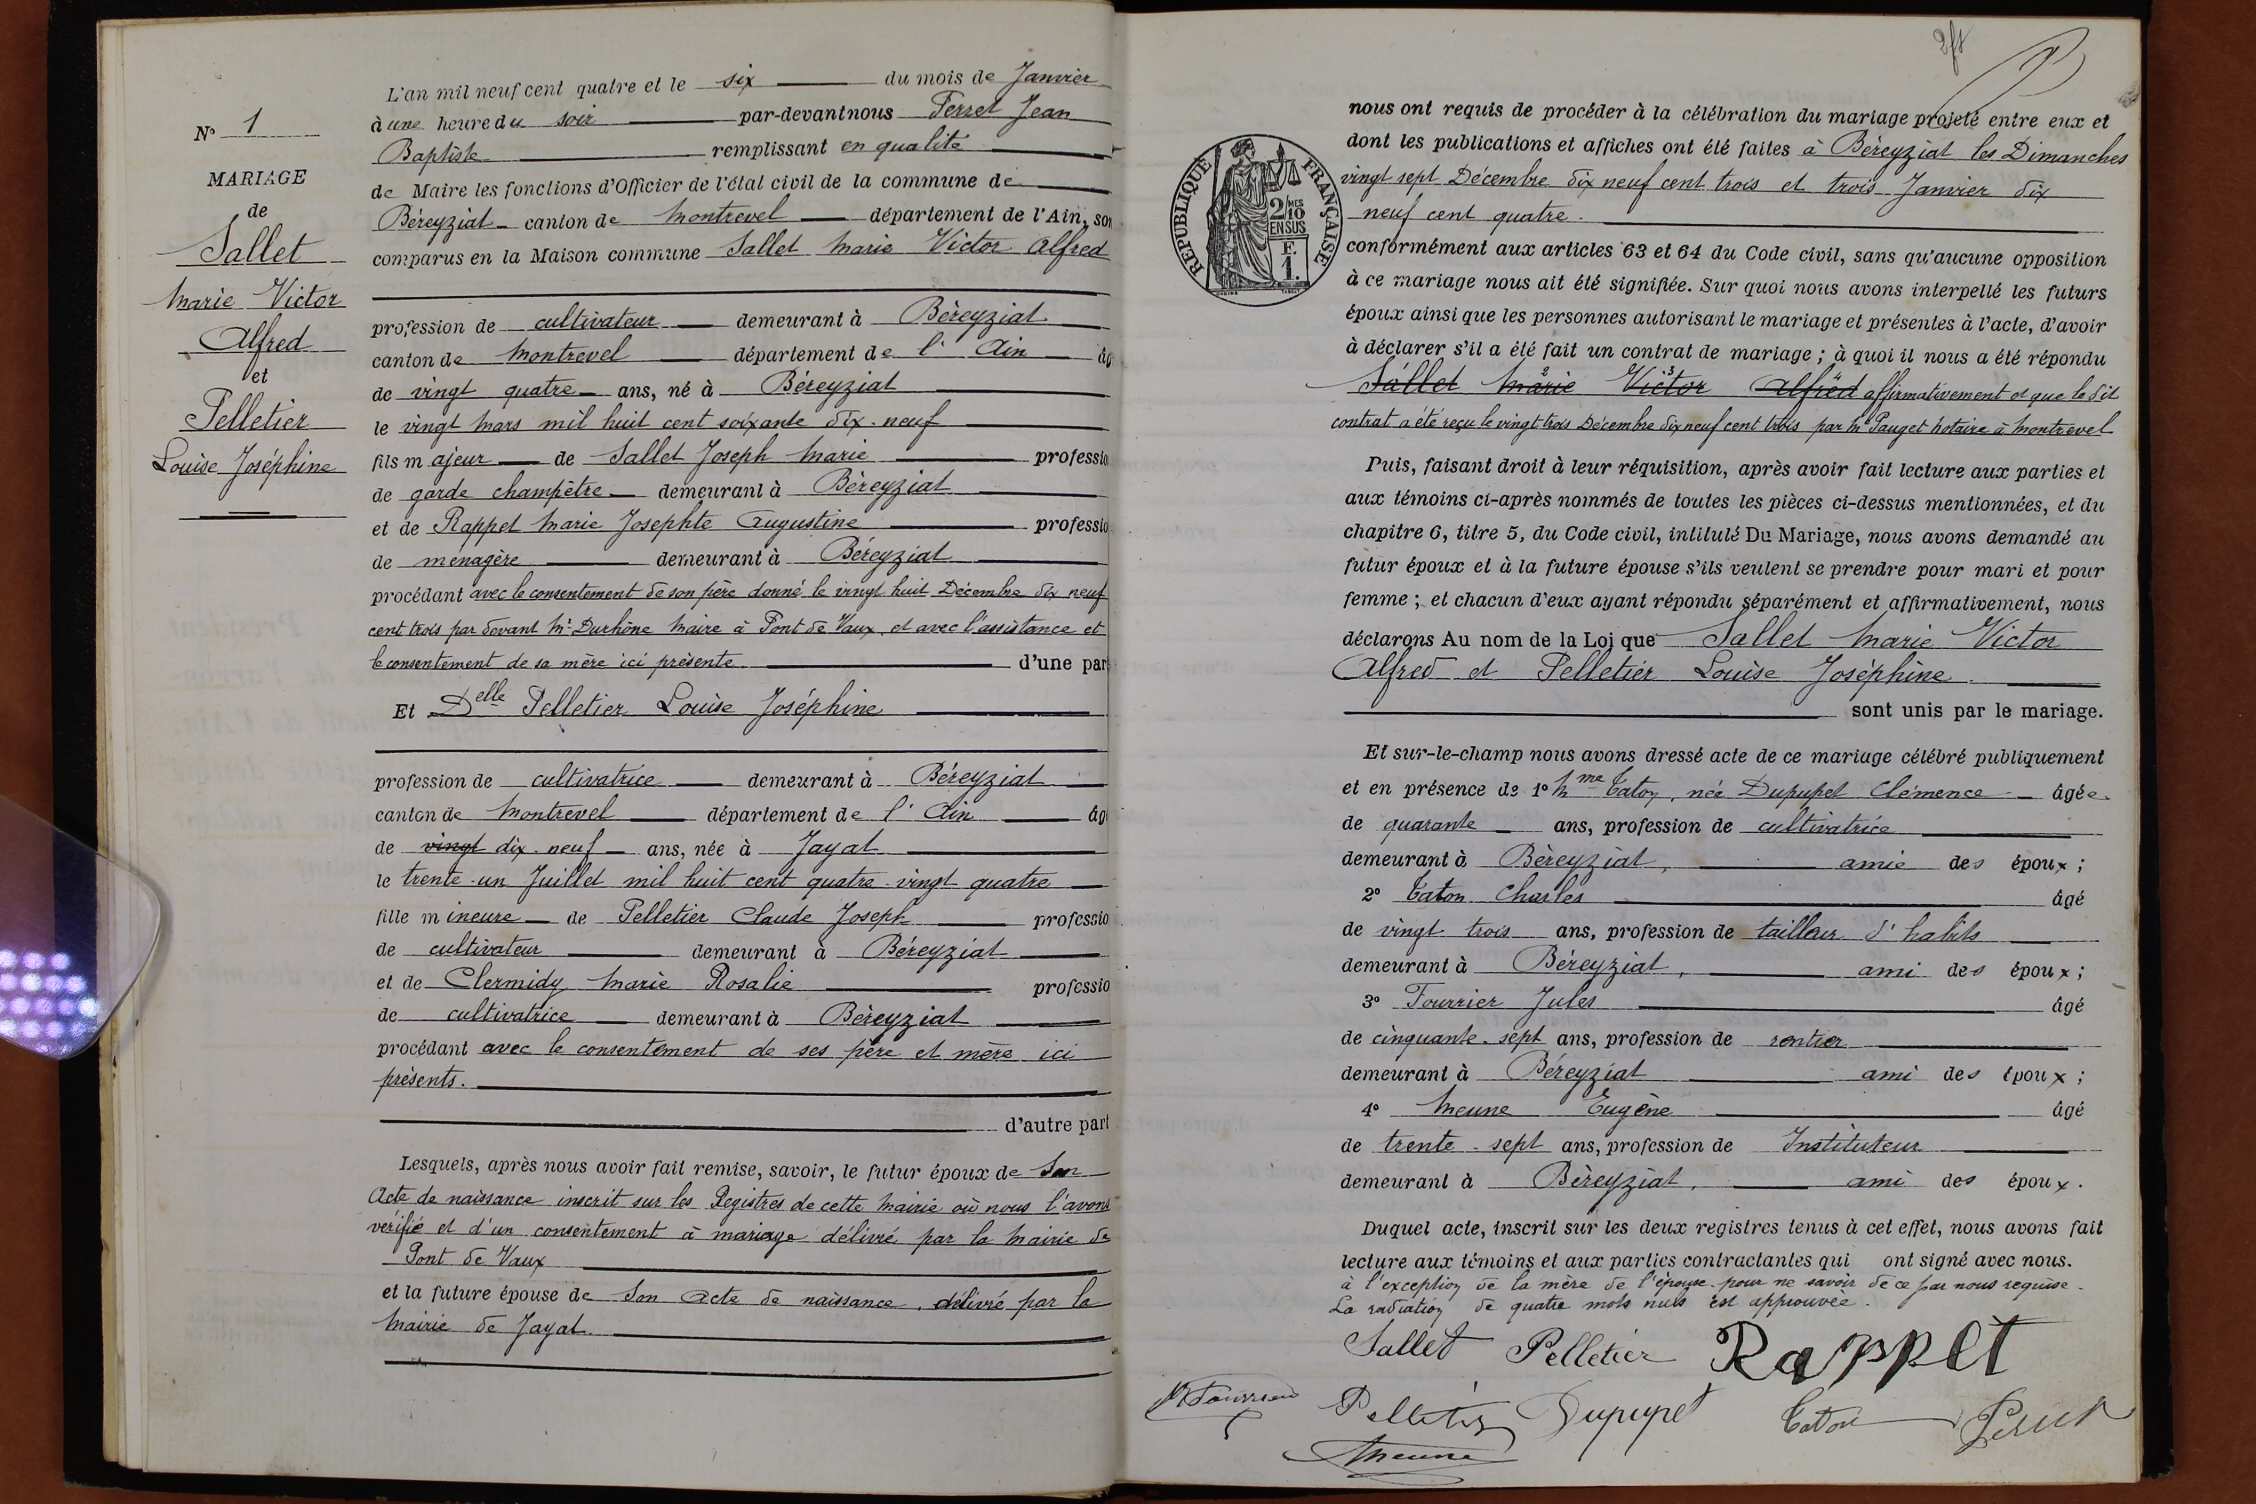 N° 1
MARIAGE
de
Sallet
Marie Victor
Alfred
et
Pelletier
Louise Joséphine
L'an mil neuf cent quatre et le six du mois de Janvier
à une heure du soir par-devant nous Perret Jean
Baptiste remplissant en qualité
de Maire les fonctions d'Officier de l'état civil de la commune de
Béreyziat canton de Montrevel département de l'Ain, son
comparus en la Maison commune Sallet Marie Victor Alfred
profession de cultivateur demeurant à Béreyziat
canton de Montrevel département de l'Ain âg
de vingt quatre ans, né à Béreyziat
le vingt Mars mil huit cent soixante dix-neuf
fils majeur de Sallet Joseph Marie professio
de garde champêtre demeurant à Béreyziat
et de Rappet Marie Josephte Augustine professio
de ménagère demeurant à Béreyziat
procédant avec le consentement de son père donné le vingt huit Décembre dix neuf
cent trois par devant Mr Durhône Maire à Pont de Vaux, et avec l'assistance et
le consentement de sa mère ici présente d'une part
Et Delle Pelletier Louise Joséphine
profession de cultivatrice demeurant à Béreyziat
canton de Montrevel département de l'Ain âg
de vingt dix-neuf ans, née à Jayat
le trente-un Juillet mil huit cent quatre-vingt quatre
fille mineure de Pelletier Claude Joseph professio
de cultivateur demeurant à Béreyziat
et de Clermidy Marie Rosalie professio
de cultivatrice demeurant à Béreyziat
procédant avec le consentement de ses père et mère ici
présents.
d'autre part
Lesquels, après nous avoir fait remise, savoir, le futur époux de Son
Acte de naissance inscrit sur les Registres de cette Mairie où nous l'avons
vérifié et d'un consentement à mariage délivré par la Mairie de
Pont de Vaux
et la future épouse de Son Acte de naissance, délivré par la
Mairie de Jayat.
RÉPUBLIQUE FRANÇAISE
2 MES
10
EN SUS
F.
1.
nous ont requis de procéder à la célébration du mariage projeté entre eux et
dont les publications et affiches ont été faites à Béreyziat les Dimanches
vingt sept Décembre dix neuf cent trois et trois Janvier dix
neuf cent quatre.
conformément aux articles 63 et 64 du Code civil, sans qu'aucune opposition
à ce mariage nous ait été signifiée. Sur quoi nous avons interpellé les futurs
époux ainsi que les personnes autorisant le mariage et présentes à l'acte, d'avoir
à déclarer s'il a été fait un contrat de mariage ; à quoi il nous a été répondu
Sallet Marie Victor Alfred affirmativement et que le dit
contrat a été reçu le vingt-trois Décembre dix neuf cent trois par Me Pauget notaire à Montrevel
Puis, faisant droit à leur réquisition, après avoir fait lecture aux parties et
aux témoins ci-après nommés de toutes les pièces ci-dessus mentionnées, et du
chapitre 6, titre 5, du Code civil, intitulé Du Mariage, nous avons demandé au
futur époux et à la future épouse s'ils veulent se prendre pour mari et pour
femme ; et chacun d'eux ayant répondu séparément et affirmativement, nous
déclarons Au nom de la Loi que Sallet Marie Victor
Alfred et Pelletier Louise Joséphine
sont unis par le mariage.
Et sur-le-champ nous avons dressé acte de ce mariage célébré publiquement
et en présence de 1° Mme Caton, née Dupupet Clémence âgée
de quarante ans, profession de cultivatrice
demeurant à Béreyziat, amie des époux ;
2° Caton Charles âgé
de vingt trois ans, profession de tailleur d'habits
demeurant à Béreyziat, ami des époux ;
3° Fourrier Jules âgé
de cinquante-sept ans, profession de rentier
demeurant à Béreyziat ami des époux ;
4° Meune Eugène âgé
de trente-sept ans, profession de Instituteur
demeurant à Béreyziat, ami des époux.
Duquel acte, inscrit sur les deux registres tenus à cet effet, nous avons fait
lecture aux témoins et aux parties contractantes qui ont signé avec nous.
à l'exception de la mère de l'épouse pour ne savoir de ce par nous requise.
La radiation de quatre mots nuls est approuvée.
Sallet Pelletier Rappet
Pelletier Dupupet Caton Perret
Meune